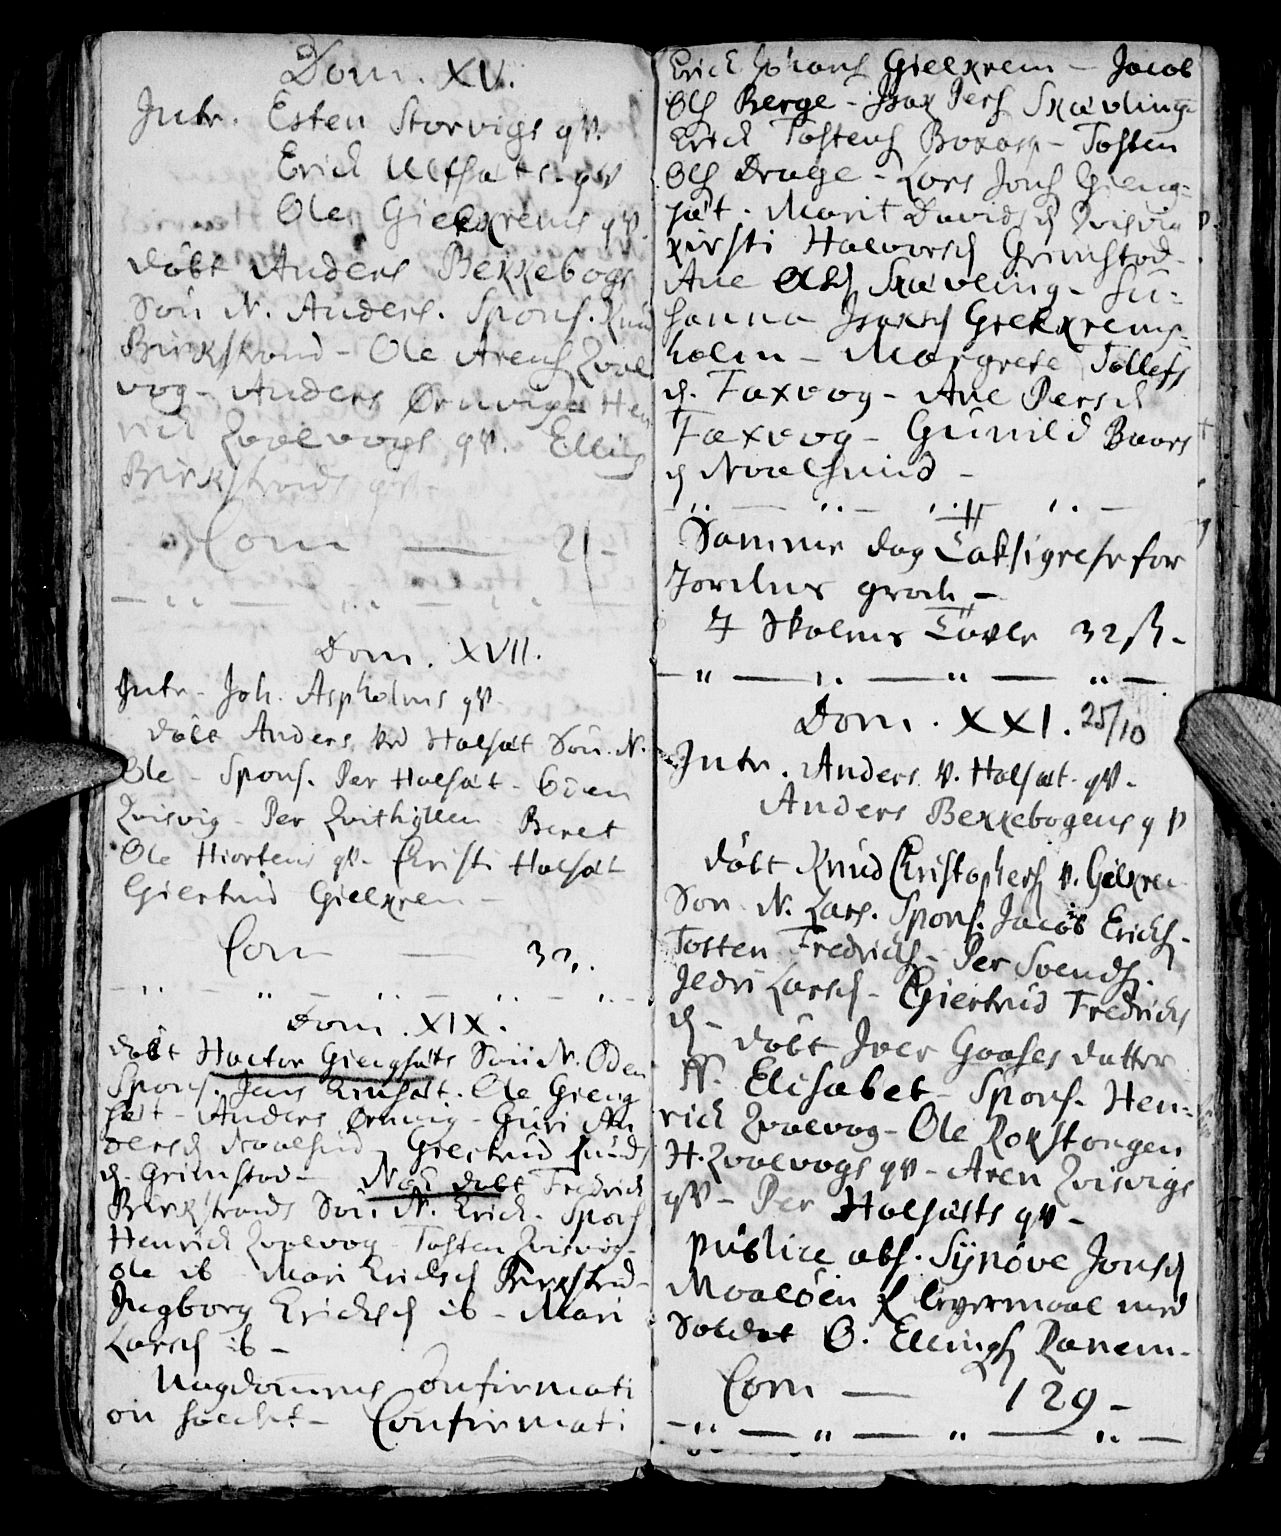 Dom. XV.
Intr. Esten Storvigs qv.
Erich Ulfsæts qv
Ole Gielkrems qv.
döbt Anders Bekkebogs
Sön N. Anders. Spons. Knud
Birkstrand - Ole Arens Qval
vog - Anders Ørnvig Hen
rich Qvalvogs qv. Elling
Birkstrands qv -
Com — 21 -
Dom. XVII.
Intr. Joh. Aspholms qv.
döbt Anders Halsæt Sön N.
Ole - Spons. Per Halsæt - Oden
Qvisvig - Per Qvithyllen Beret
Ole Hiortens qv - Christi Halsæt
Giertrud Gielkrem -
Com — 32.
Dom. XIX.
döbt Hactor Giengsæts Sön N. Oden
Spons. Jens Einsæt. Ole Gieng
sæt - Anders Ørnvig - Guri An
dersd Noalsund Giertrud Knuds
d. Grimstad - Nød döbt Fredrich
Birkstrands Sön N. Erich. Spons
Henrich Qvalvog Tosten Qvisvig -
Ole ib - Mari Ericksd Birkstrand -
Ingborg Ericksd ib - Mari
Larsd ib -
Ungdommens Confirmati
on holdt - Confirmati
Erich Johans Gielkrem - Jacob
Ols Berge - Isax Pers Skævling
Erich Tostens Boxasp - Tosten
Ols Drage - Lars Jons Gieng-
sæt - Marit Davidsd Qvisvig
Kirsti Halvorsd Grimstad -
Ane Olsd Skævling - Su-
sanna Isaxsd Gielkrems-
holm - Margrete Tollefs
d. Faxvog - Ane Persd
Faxvog - Gunild Baars
d Noalsund -
Samme dag Taksigelse for
Jordens grøde -
I Skolens Tavle 32 ß -
Dom. XXI. 25/10
Intr. Anders P. Halsæt qv -
Anders Bekkebogens qv
döbt Knud Christophers v. Gielkrem
Son N. Lars. Spons. Jacob Ericks -
Tosten Fredrichs - Per Svends.
Jedri Larsd - Giertrud Fredrichs
d - döbt Iver Gaases datter
N. Elisabet - Spons. Hen-
rich Qvalvog - Ole Rokstangen
H. Qvalvogs qv - Aren Qvisvigs
qv - Per Halsæts qv -
publice abs. Synöve Jonsd
Moalöen f. leyermaal med
Soldat O. Ellings Ranem -
Com — 129 -